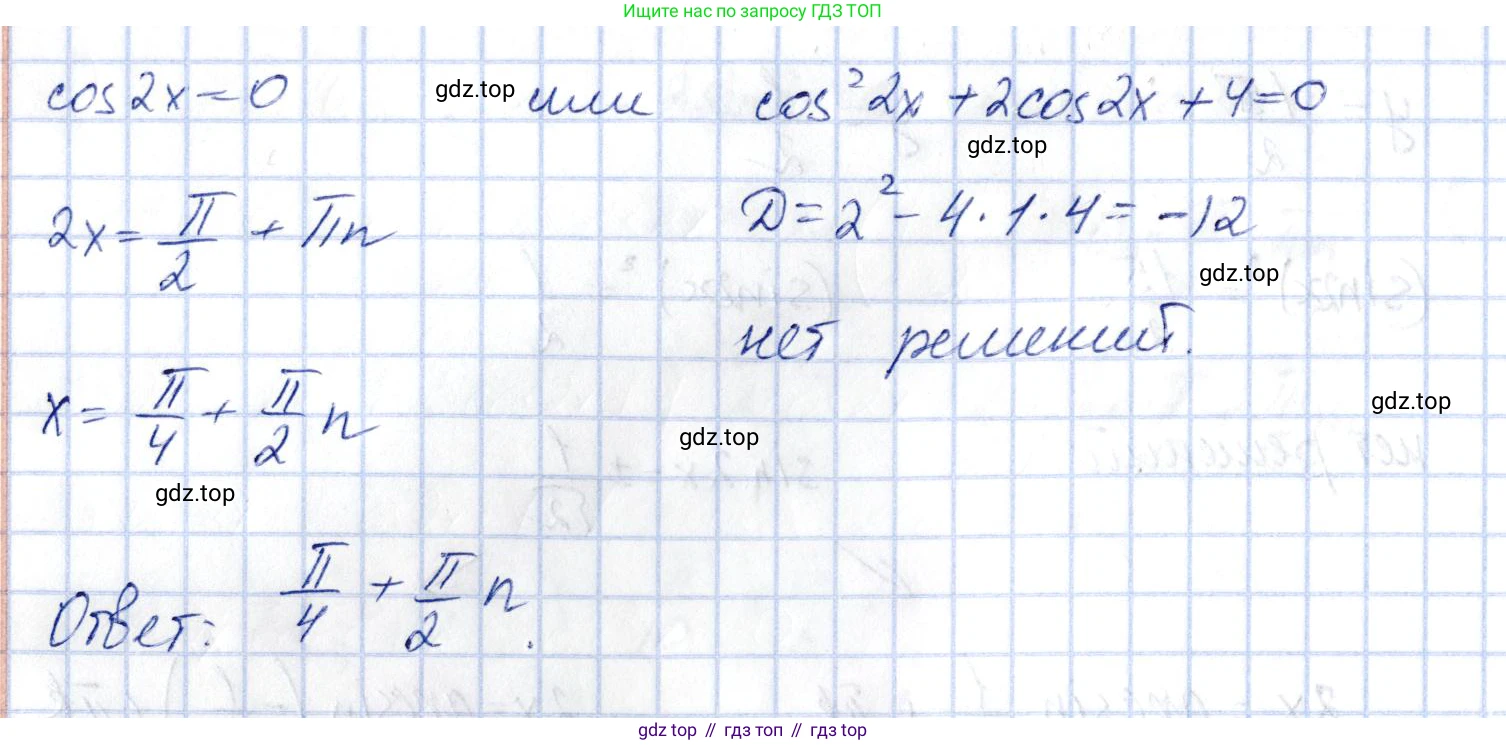 Ищите нас по запросу ГДЗ ТОП
cos 2x = 0 gdz.top или cos² 2x + 2cos 2x + 4 = 0
gdz.top
2x = π/2 + πn D = 2² - 4 · 1 · 4 = -12
gdz.top
нет решений.
x = π/4 + π/2 n gdz.top
gdz.top
gdz.top
Ответ: π/4 + π/2 n.
gdz.top // гдз топ // гдз.top